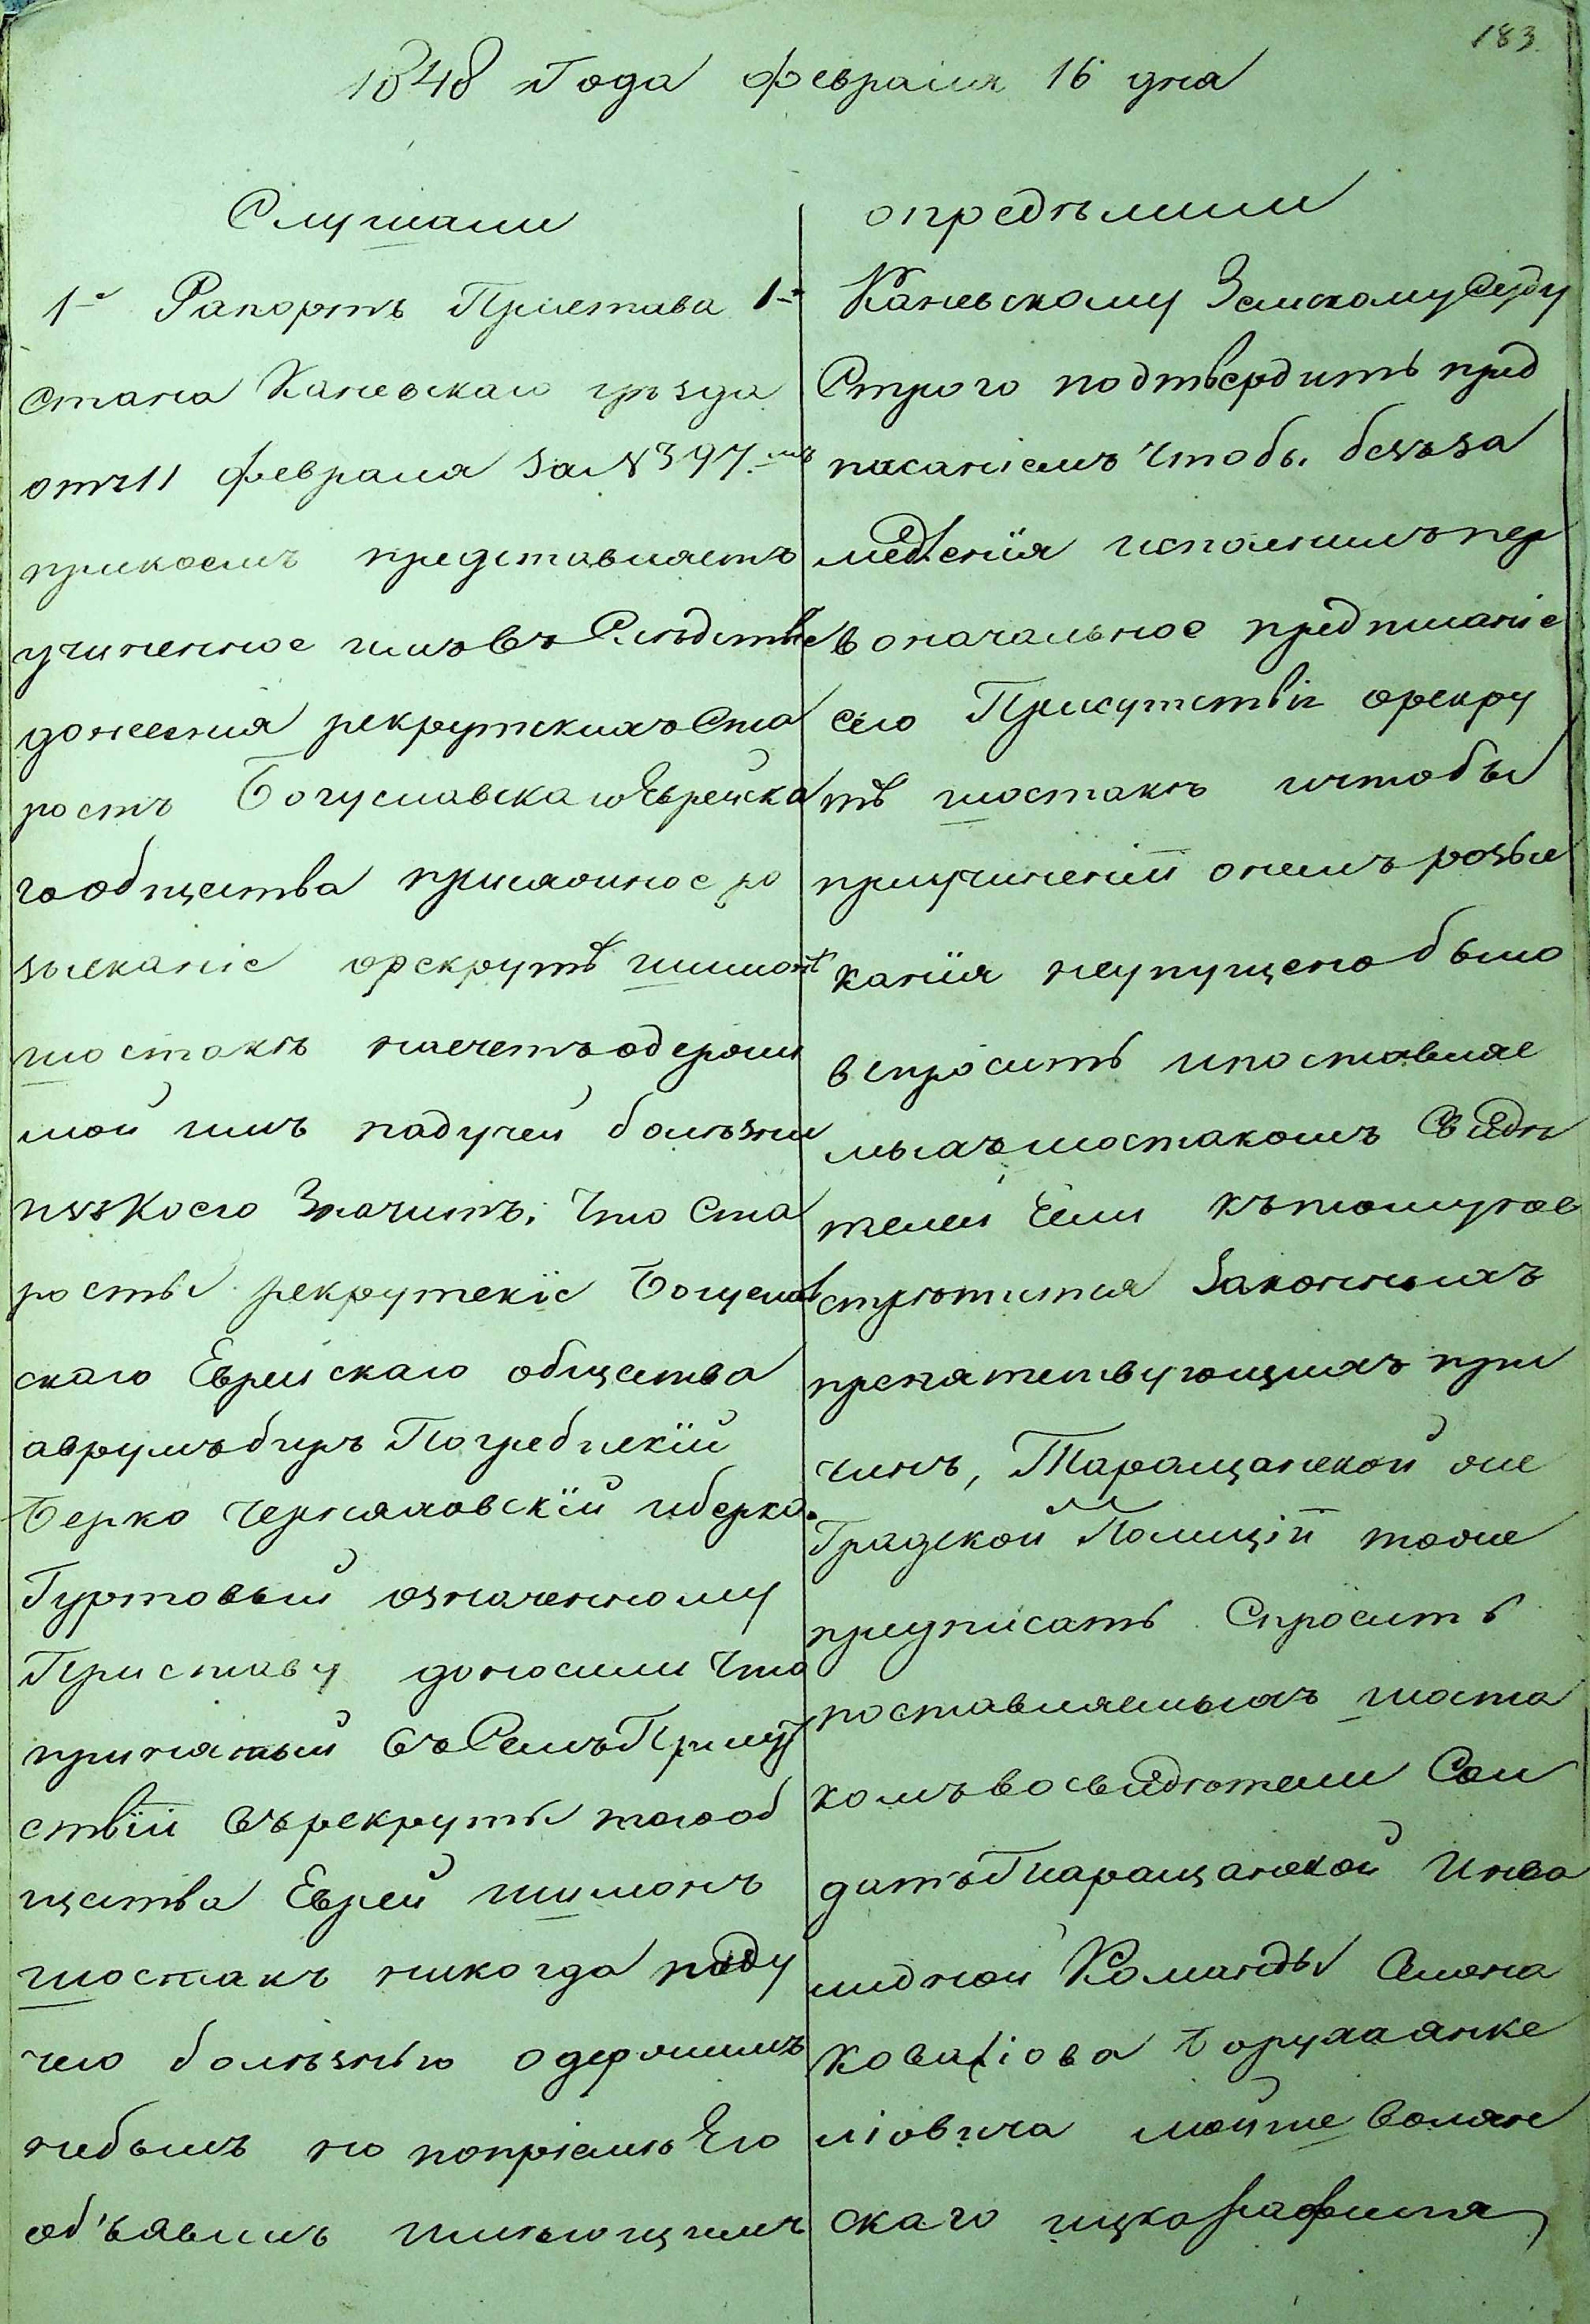 183
1848 Года февраля 16 дня
Слушали
1е Рапортъ Пристава 1го
Стана Каневскаго уѣзда
отъ 11 февраля за № 397.мъ
прикоемъ представляетъ
учиненное имъ въ Слѣдствіе
донесенія рекрутскихъ Ста
ростъ Богуславскаго Еврейска
го общества присяжное ро
зысканіе орекрутѣ шимонѣ
шостакѣ насчетъ одержи
мой имъ падучей болѣзни
изъ Коего Значитъ, Что Ста
росты рекрутскіе Богуслав
скаго Еврейскаго общества
аврумъ биръ Погребискій
Берко Черняховскій иберко
Гуртовый означенному
Приставу доносили Что
принятый въ Семъ Присут
ствіи въ рекруты того об
щества Еврей шимонъ
шостакъ никогда паду
чею болѣзнью одержимъ
небылъ но попріемѣ Его
объявилъ имѣющимъ
опредѣлили
Каневскому Земскому Суду
Строго подтвердить пред
писаніемъ Чтобы безъ за
медленія исполнилъ пер
воначальное предписаніе
сего Присутствія орекру
тѣ шостакѣ ичтобы
приучиненіи онемъ розыс
канія неупущено было
вспросить ипоставляе
мыхъ шостакомъ Свидѣ
телей Если къ тому нев
стрѣтится Законныхъ
препятствующихъ при
чинъ, Таращанской же
Градской Полиціи тоже
предписать Спросить
поставляемыхъ шоста
комъ во свидѣтели Сол
датъ Таращанской Инва
лидной Команды Симона
Ковалiова Боруха янке
ліовича мойше Волян
скаго ицка рафина